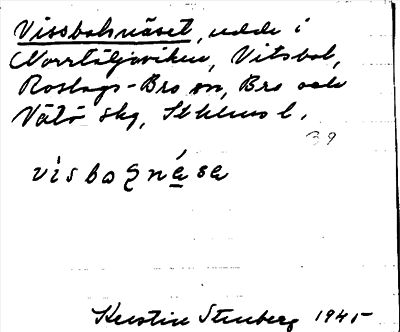 Vissboknäset, udde i
Norrtäljeviken, Vitsbol,
Roslags-Bro sn, Bro och
Vätö skg, Sthlms l.
39
visbognása
Kerstin Stenberg 1945